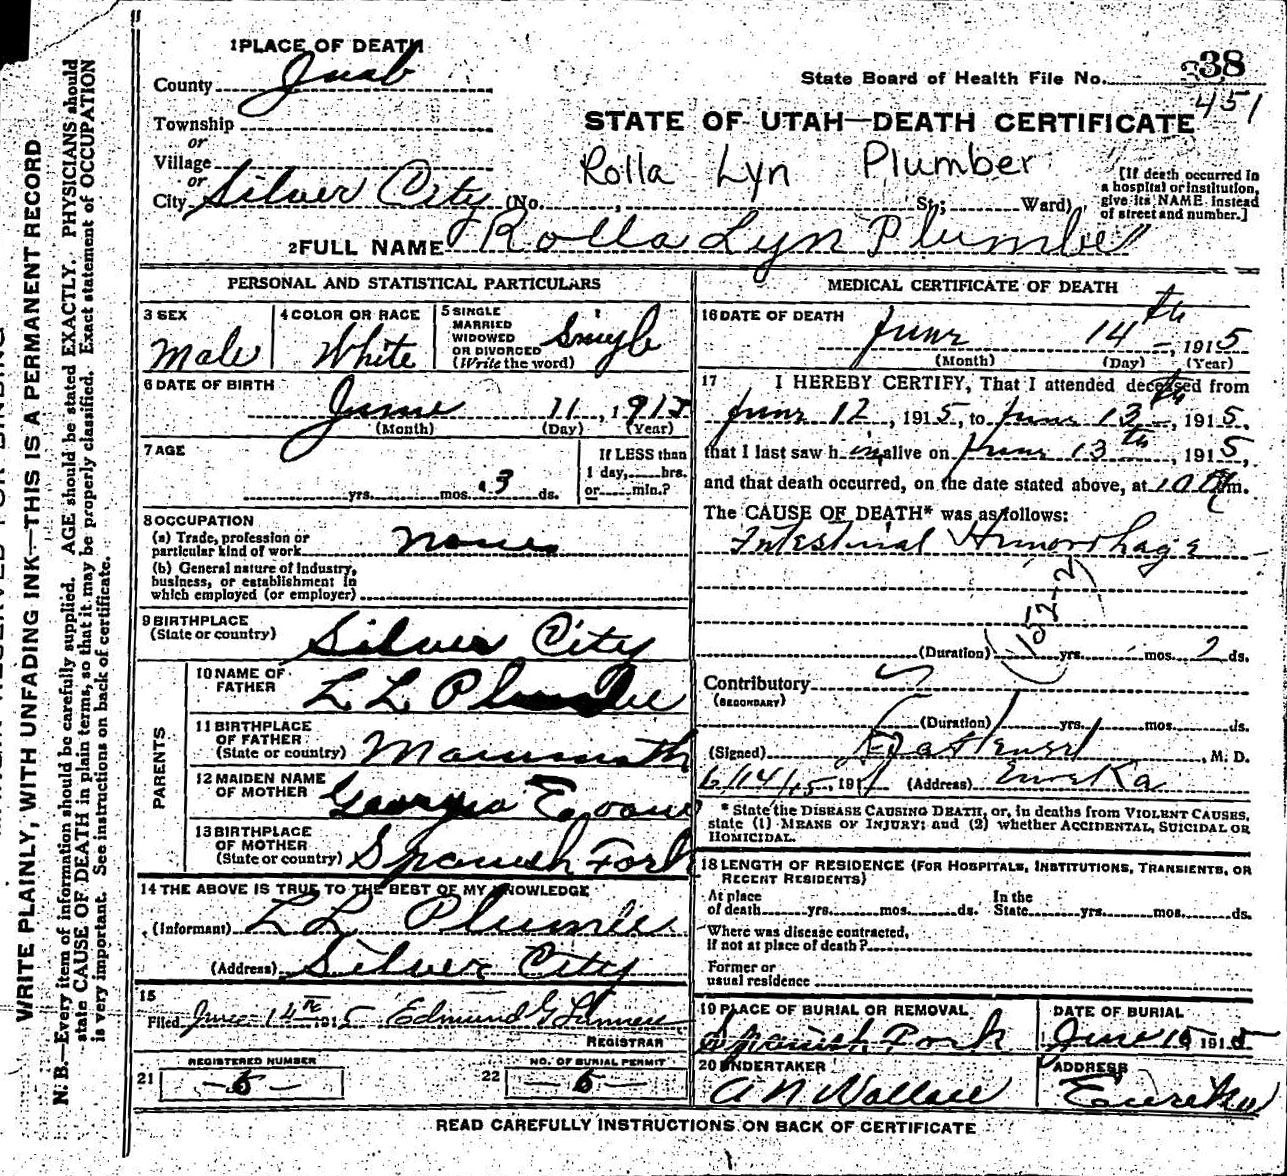 1 PLACE OF DEATH
County Juab
State Board of Health File No. 38
451
Township
or
Village
or
City Silver City (No. , St; Ward)
STATE OF UTAH—DEATH CERTIFICATE
Rolla Lyn Plumber
[If death occurred in
a hospital or institution,
give its NAME instead
of street and number.]
2 FULL NAME Rolla Lyn Plumbe
PERSONAL AND STATISTICAL PARTICULARS
3 SEX
Male
4 COLOR OR RACE
White
5 SINGLE
MARRIED
WIDOWED
OR DIVORCED
(Write the word)
Single
6 DATE OF BIRTH
June 11, 1915
(Month) (Day) (Year)
7 AGE
yrs. mos. 3 ds.
If LESS than
1 day, hrs.
or min.?
8 OCCUPATION
(a) Trade, profession or
particular kind of work None
(b) General nature of industry,
business, or establishment in
which employed (or employer)
9 BIRTHPLACE
(State or country) Silver City
PARENTS
10 NAME OF
FATHER L L
11 BIRTHPLACE
OF FATHER
(State or country) Mammoth
12 MAIDEN NAME
OF MOTHER Georgia
13 BIRTHPLACE
OF MOTHER
(State or country) Spanish Fork
14 THE ABOVE IS TRUE TO THE BEST OF MY KNOWLEDGE
(Informant) L L Plumbe
(Address) Silver City
15
Filed June 14 1915 Edmund G
REGISTRAR
REGISTERED NUMBER
21 -5-
NO. OF BURIAL PERMIT
22 -5-
MEDICAL CERTIFICATE OF DEATH
16 DATE OF DEATH
June 14th, 1915
(Month) (Day) (Year)
17 I HEREBY CERTIFY, That I attended deceased from
June 12, 1915, to June 13th, 1915,
that I last saw h im alive on June 13th, 1915,
and that death occurred, on the date stated above, at m.
The CAUSE OF DEATH* was as follows:
Intestinal Hemorrhage
(152-2)
(Duration) yrs. mos. 2 ds.
Contributory
(SECONDARY)
(Duration) yrs. mos. ds.
(Signed) , M. D.
6/14/15, 191 (Address) Eureka
* State the DISEASE CAUSING DEATH, or, in deaths from VIOLENT CAUSES,
state (1) MEANS OF INJURY; and (2) whether ACCIDENTAL, SUICIDAL OR
HOMICIDAL.
18 LENGTH OF RESIDENCE (FOR HOSPITALS, INSTITUTIONS, TRANSIENTS, OR
RECENT RESIDENTS)
At place
of death yrs. mos. ds.
In the
State yrs. mos. ds.
Where was disease contracted,
if not at place of death?
Former or
usual residence
19 PLACE OF BURIAL OR REMOVAL
Spanish Fork
DATE OF BURIAL
June 15 1915
20 UNDERTAKER
A N Wallace
ADDRESS
Eureka
READ CAREFULLY INSTRUCTIONS ON BACK OF CERTIFICATE
WRITE PLAINLY, WITH UNFADING INK—THIS IS A PERMANENT RECORD
N. B.—Every item of information should be carefully supplied. AGE should be stated EXACTLY. PHYSICIANS should
state CAUSE OF DEATH in plain terms, so that it may be properly classified. Exact statement of OCCUPATION
is very important. See instructions on back of certificate.